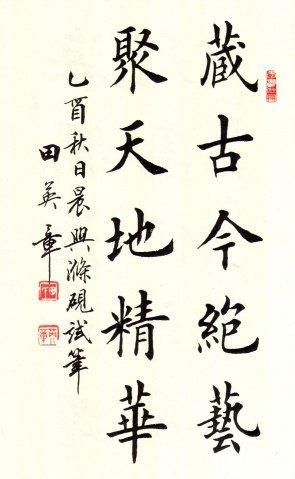 藏古今絶藝
聚天地精華
乙酉秋日晨興滌硯試筆
田英章